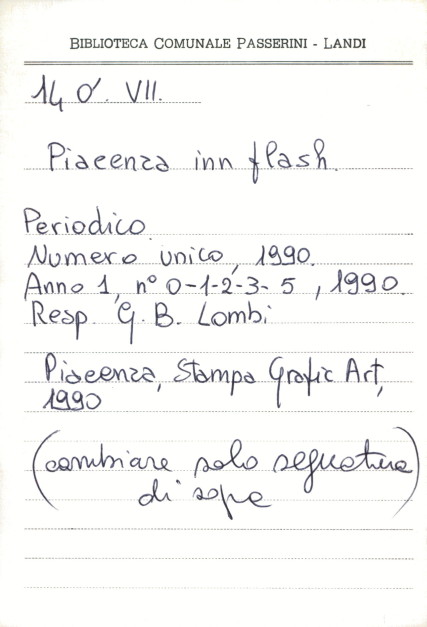 BIBLIOTECA COMUNALE PASSERINI - LANDI
14 O'. VII.
Piacenza inn flash.
Periodico.
Numero unico, 1990.
Anno 1, n° 0-1-2-3-5, 1990.
Resp. G. B. Lombi
Piacenza, Stampa Grafic Art,
1990
(cambiare solo segnatura
di sopra)